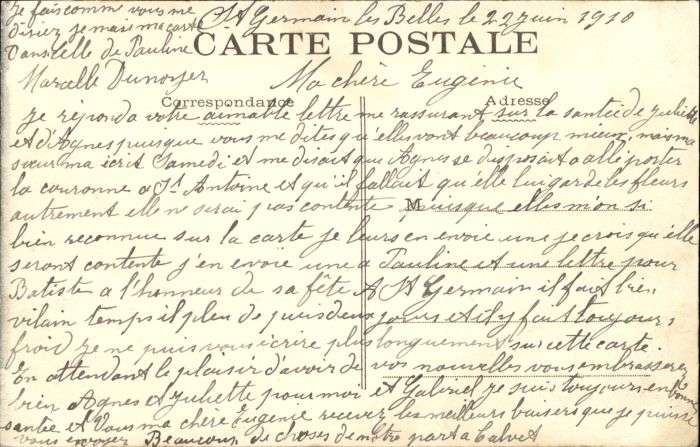 Je fais comme vous me
disiez je mais ma carte
dans celle de Pauline
Marcelle Dunoyer
St Germain les Belles le 22 juin 1910
CARTE POSTALE
Ma chère Eugénie
Correspondance
Adresse
Je réponds a votre aimable lettre me rassurant sur la santé de Juliette
et d'Agnes puisque vous me dites qu'elles vont beaucoup mieux, mais ma
sœur ma écrit Samedi et me disait que Agnes se disposait a allé porter
la couronne a St Antoine et qu'il fallait qu'elle lui garde les fleurs
autrement elle ne serai pas contente M puisque elles m'on si
bien reconnue sur la carte je leurs en envoie une je crois qu'elle
seront contente j'en envoie une a Pauline et une lettre pour
Batiste a l'honneur de sa fête A St Germain il fait bien
vilain temps il pleu de puis deux jours et il y fait toujours
froid je ne puis vous écrire plus longuement sur cette carte.
En attendant le plaisir d'avoir de vos nouvelles vous embrasserez
bien Agnes et Juliette pour moi et Gabriel je suis toujours en bonne
santée et Vous ma chère Eugenie recevez les meilleurs baisers que je puisse
vous envoyer Beaucoup de choses de notre part a Calvet